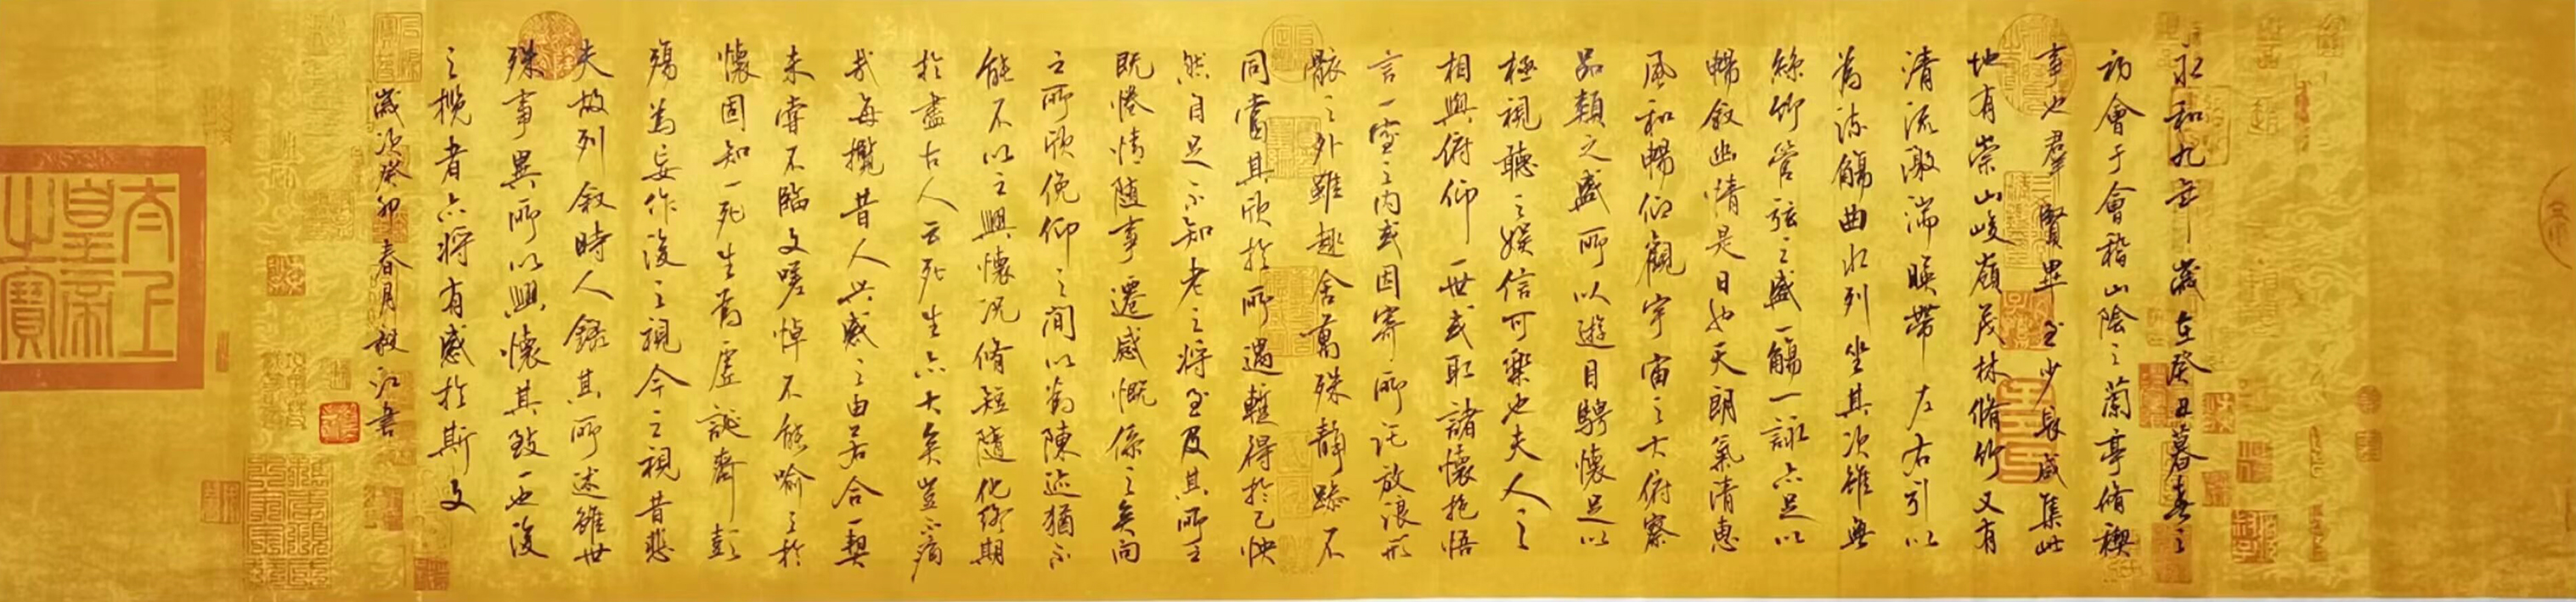 永和九年歲在癸丑暮春之
初會于會稽山陰之蘭亭脩禊
事也羣賢畢至少長咸集此
地有崇山峻嶺茂林脩竹又有
清流激湍暎帶左右引以
為流觴曲水列坐其次雖無
絲竹管弦之盛一觴一詠亦足以
暢敘幽情是日也天朗氣清惠
風和暢仰觀宇宙之大俯察
品類之盛所以遊目騁懷足以
極視聽之娛信可樂也夫人之
相與俯仰一世或取諸懷抱悟
言一室之內或因寄所託放浪形
骸之外雖趣舍萬殊靜躁不
同當其欣於所遇蹔得於己怏
然自足不知老之將至及其所之
既惓情隨事遷感慨係之矣向
之所欣俛仰之間以為陳迹猶不
能不以之興懷況脩短隨化終期
於盡古人云死生亦大矣豈不痛
哉每攬昔人興感之由若合一契
未嘗不臨文嗟悼不能喻之於
懷固知一死生為虛誕齊彭
殤為妄作後之視今之視昔悲
夫故列敘時人錄其所述雖世
殊事異所以興懷其致一也後
之攬者亦將有感於斯文
歲次癸卯春月江書
太上皇帝之寶